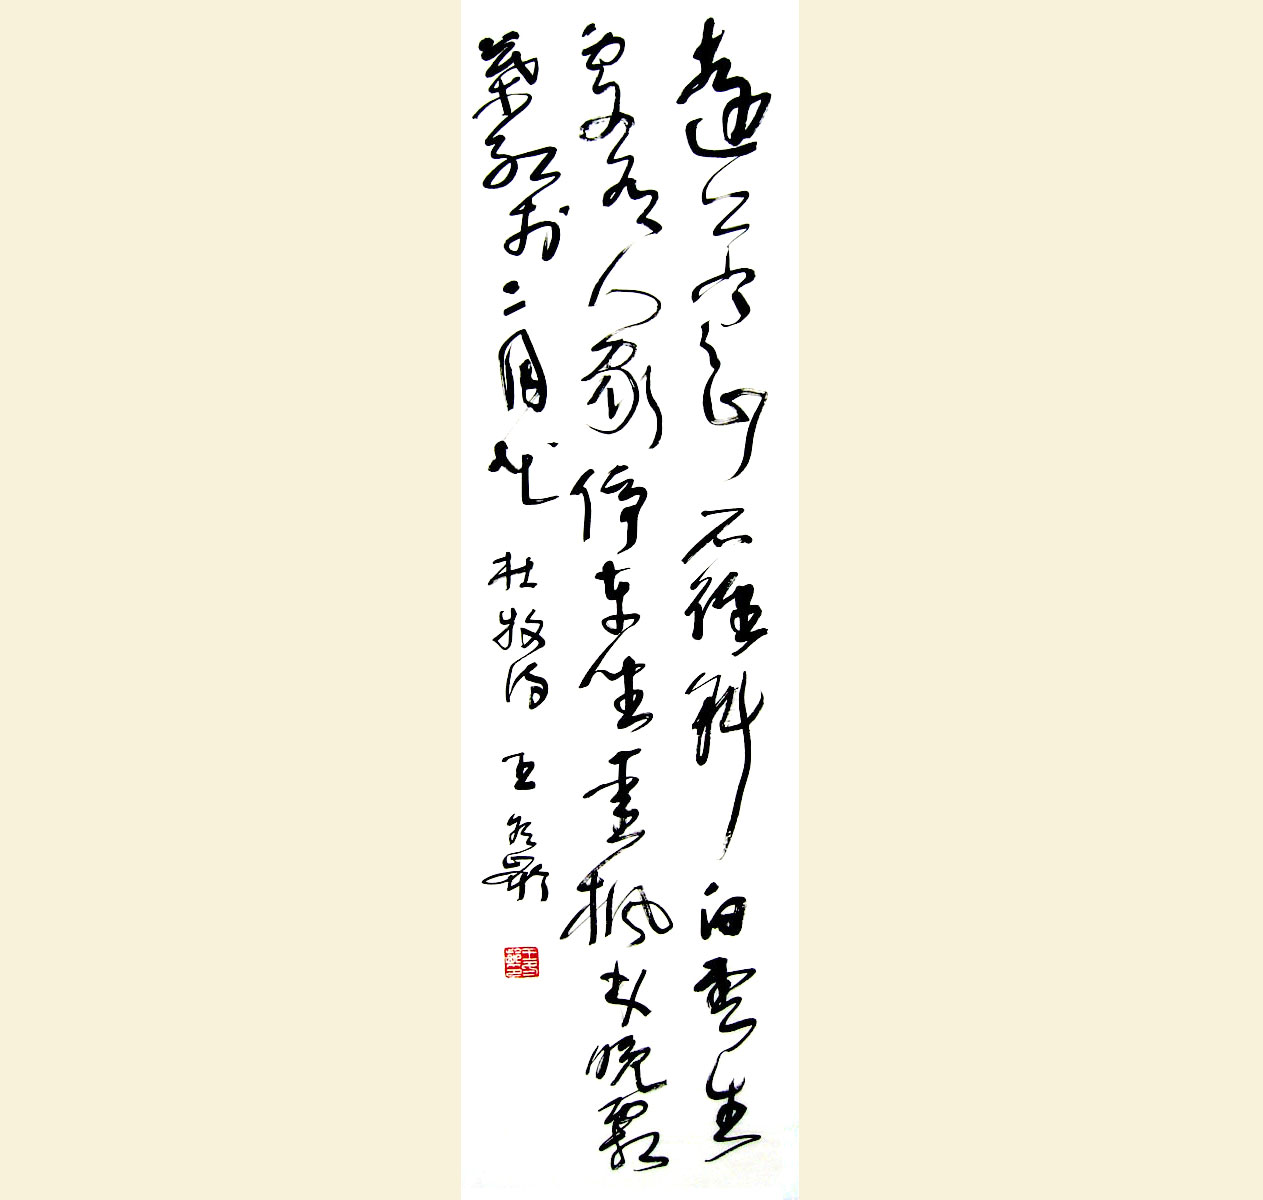 遠上寒山石徑斜白雲生
處有人家停車坐愛楓林晚霜
葉紅於二月花 杜牧詩 王冬齡